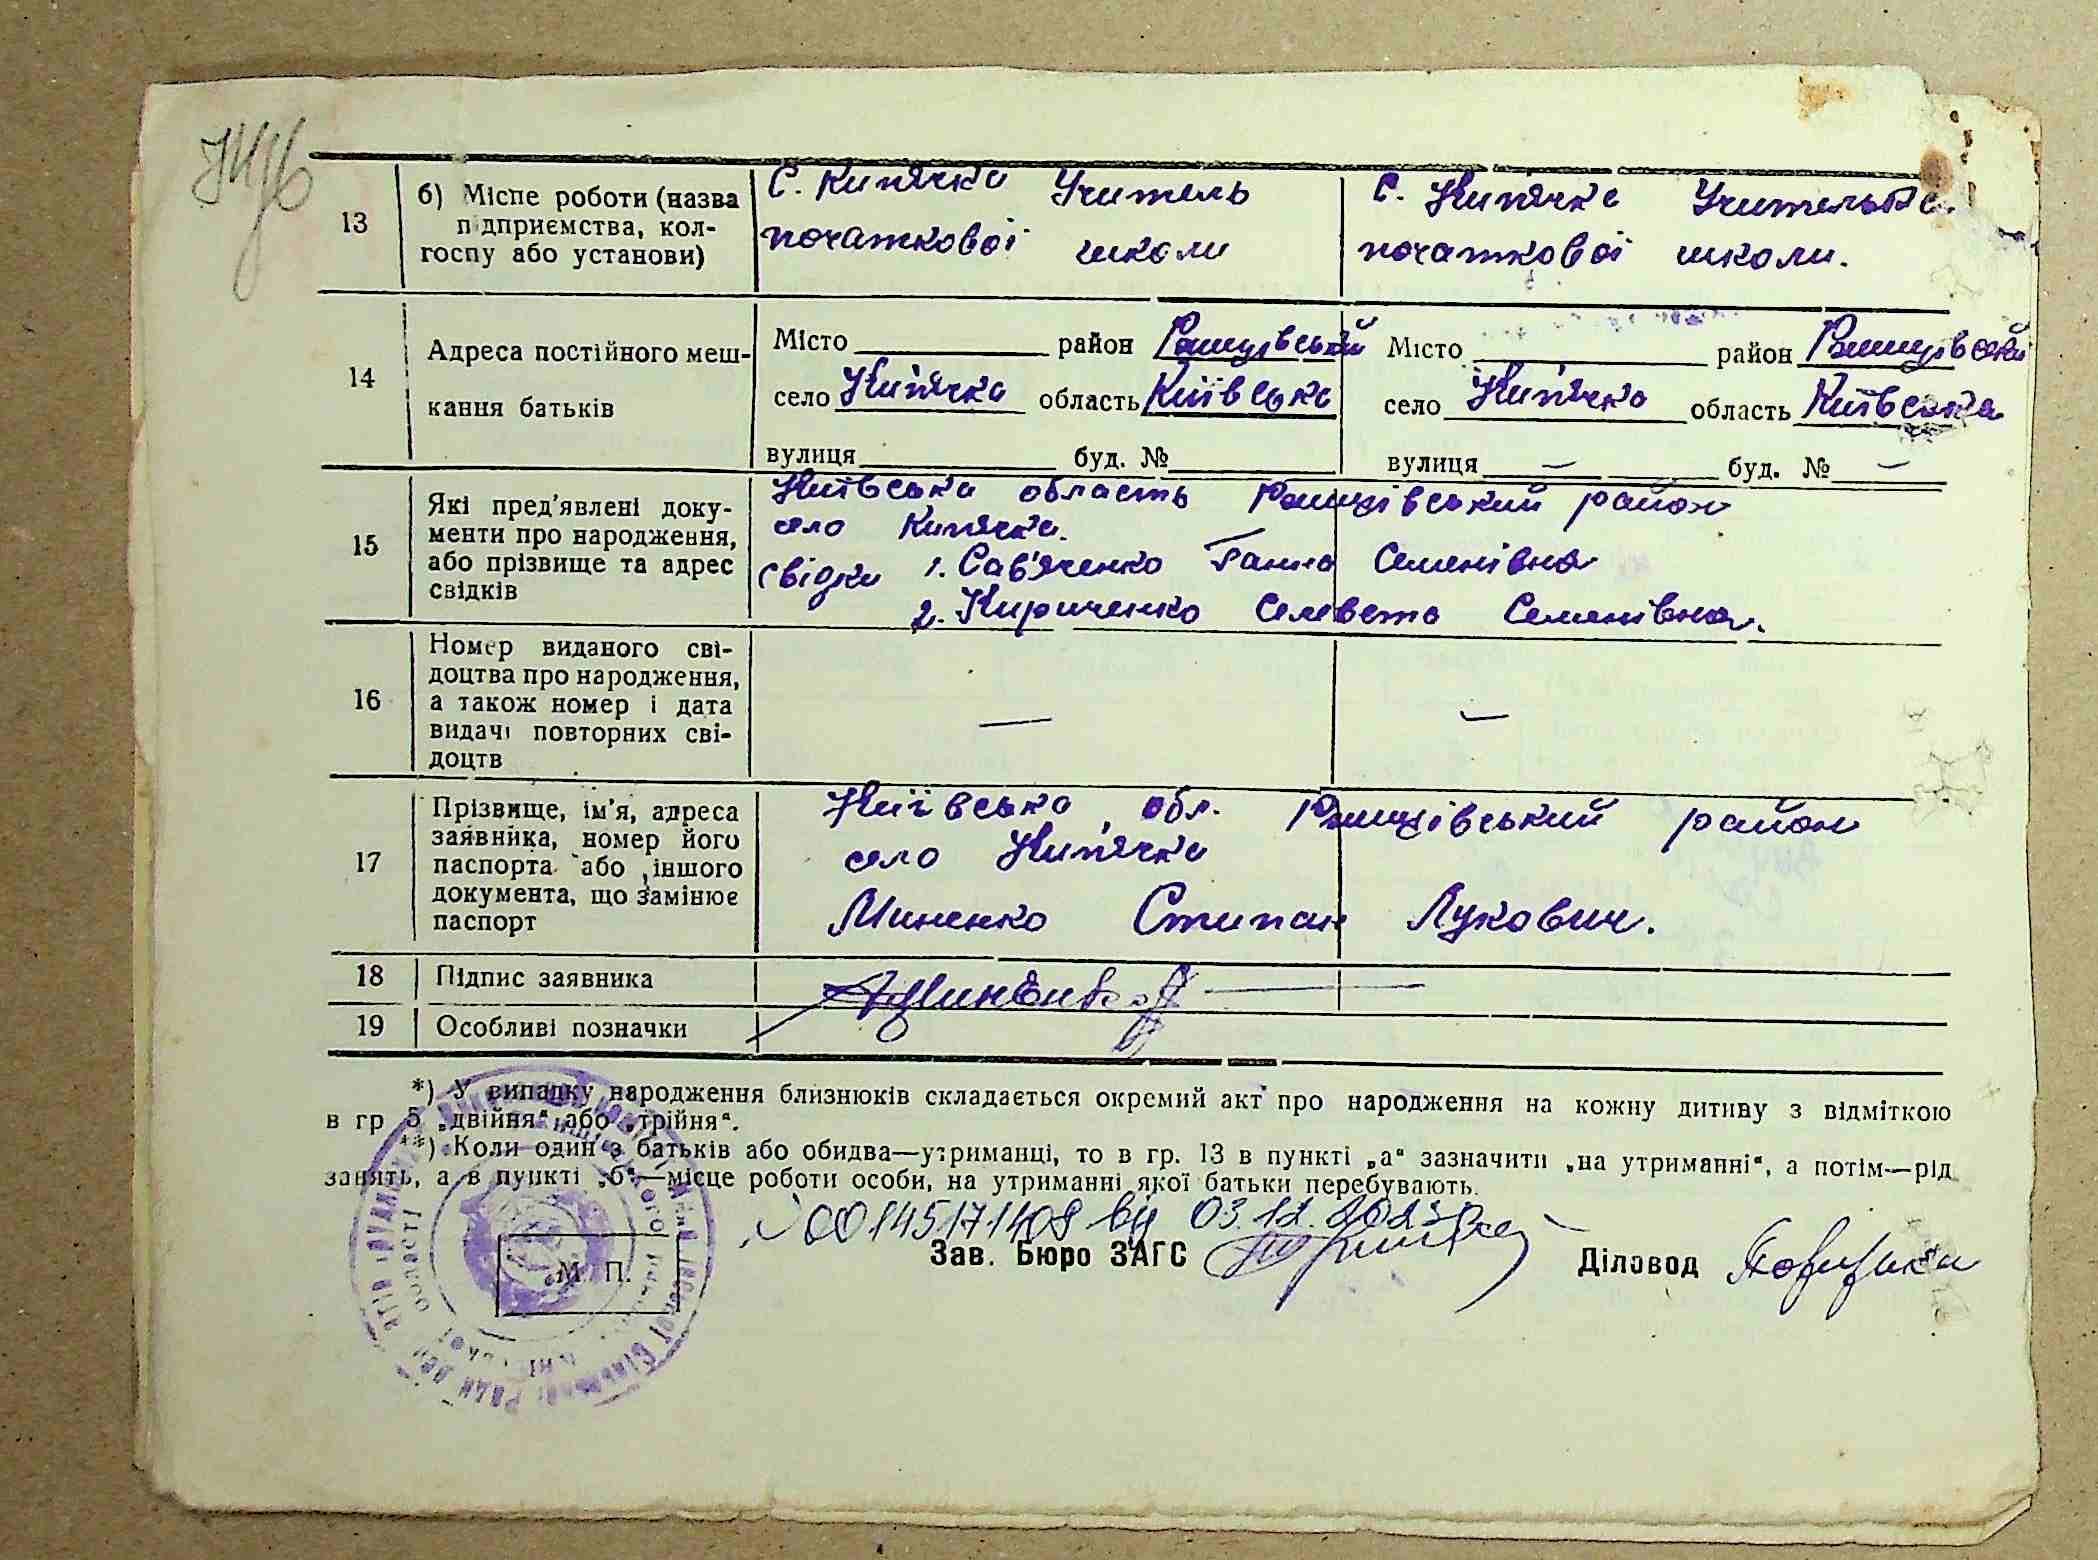 13
б) Місце роботи (назва підприємства, колгоспу або установи)
с. Кип'ячка Учитель
початкової школи
с. Кип'ячка Учителька
початкової школи.
14
Адреса постійного мешкання батьків
Місто район Ржищівський
село Кип'ячка область Київська
вулиця буд. №
Місто район Ржищівський
село Кип'ячка область Київська
вулиця — буд. № —
15
Які пред'явлені документи про народження, або прізвище та адрес свідків
Київська область Ржищівський район
село Кип'ячка.
свідки 1. Сав'яченко Ганна Семенівна
2. Кириченко Селівета Семенівна.
16
Номер виданого свідоцтва про народження, а також номер і дата видачі повторних свідоцтв
— —
17
Прізвище, ім'я, адреса заявника, номер його паспорта або іншого документа, що замінює паспорт
Київська обл. Ржищівський район
село Кип'ячка
Миненко Стипан Лукович.
18 Підпис заявника
19 Особливі позначки
*) У випадку народження близнюків складається окремий акт про народження на кожну дитину з відміткою
в гр 5 „двійня" або „трійня".
**) Коли один з батьків або обидва—утриманці, то в гр. 13 в пункті „а" зазначити „на утриманні", а потім—рід
занять, а в пункті „б"—місце роботи особи, на утриманні якої батьки перебувають.
00145171408 від 03.12.2023р
М. П.
Зав. Бюро ЗАГС
Діловод